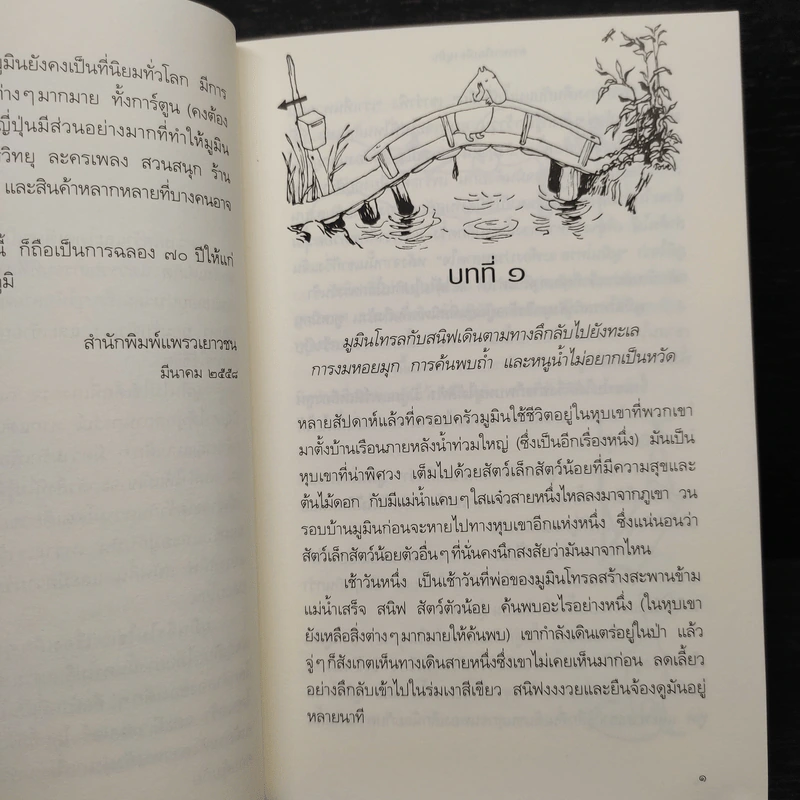 มูมินยังคงเป็นที่นิยมทั่วโลก มีการ
ต่างๆมากมาย ทั้งการ์ตูน (คงต้อง
ญี่ปุ่นมีส่วนอย่างมากที่ทำให้มูมิน
วิทยุ ละครเพลง สวนสนุก ร้าน
และสินค้าหลากหลายที่บางคนอาจ
นี้ ก็ถือเป็นการฉลอง ๗๐ ปีให้แก่
ภูมิ
สำนักพิมพ์แพรวเยาวชน
มีนาคม ๒๕๕๘
บทที่ ๑
มูมินโทรลกับสนิฟเดินตามทางลึกลับไปยังทะเล
การงมหอยมุก การค้นพบถ้ำ และหนูน้ำไม่อยากเป็นหวัด
หลายสัปดาห์แล้วที่ครอบครัวมูมินใช้ชีวิตอยู่ในหุบเขาที่พวกเขา
มาตั้งบ้านเรือนภายหลังน้ำท่วมใหญ่ (ซึ่งเป็นอีกเรื่องหนึ่ง) มันเป็น
หุบเขาที่น่าพิศวง เต็มไปด้วยสัตว์เล็กสัตว์น้อยที่มีความสุขและ
ต้นไม้ดอก กับมีแม่น้ำแคบๆใสแจ๋วสายหนึ่งไหลลงมาจากภูเขา วน
รอบบ้านมูมินก่อนจะหายไปทางหุบเขาอีกแห่งหนึ่ง ซึ่งแน่นอนว่า
สัตว์เล็กสัตว์น้อยตัวอื่นๆที่นั่นคงนึกสงสัยว่ามันมาจากไหน
เช้าวันหนึ่ง เป็นเช้าวันที่พ่อของมูมินโทรลสร้างสะพานข้าม
แม่น้ำเสร็จ สนิฟ สัตว์ตัวน้อย ค้นพบอะไรอย่างหนึ่ง (ในหุบเขา
ยังเหลือสิ่งต่างๆมากมายให้ค้นพบ) เขากำลังเดินเตร่อยู่ในป่า แล้ว
จู่ๆก็สังเกตเห็นทางเดินสายหนึ่งซึ่งเขาไม่เคยเห็นมาก่อน ลดเลี้ยว
อย่างลึกลับเข้าไปในร่มเงาสีเขียว สนิฟงงงวยและยืนจ้องดูมันอยู่
หลายนาที
๑